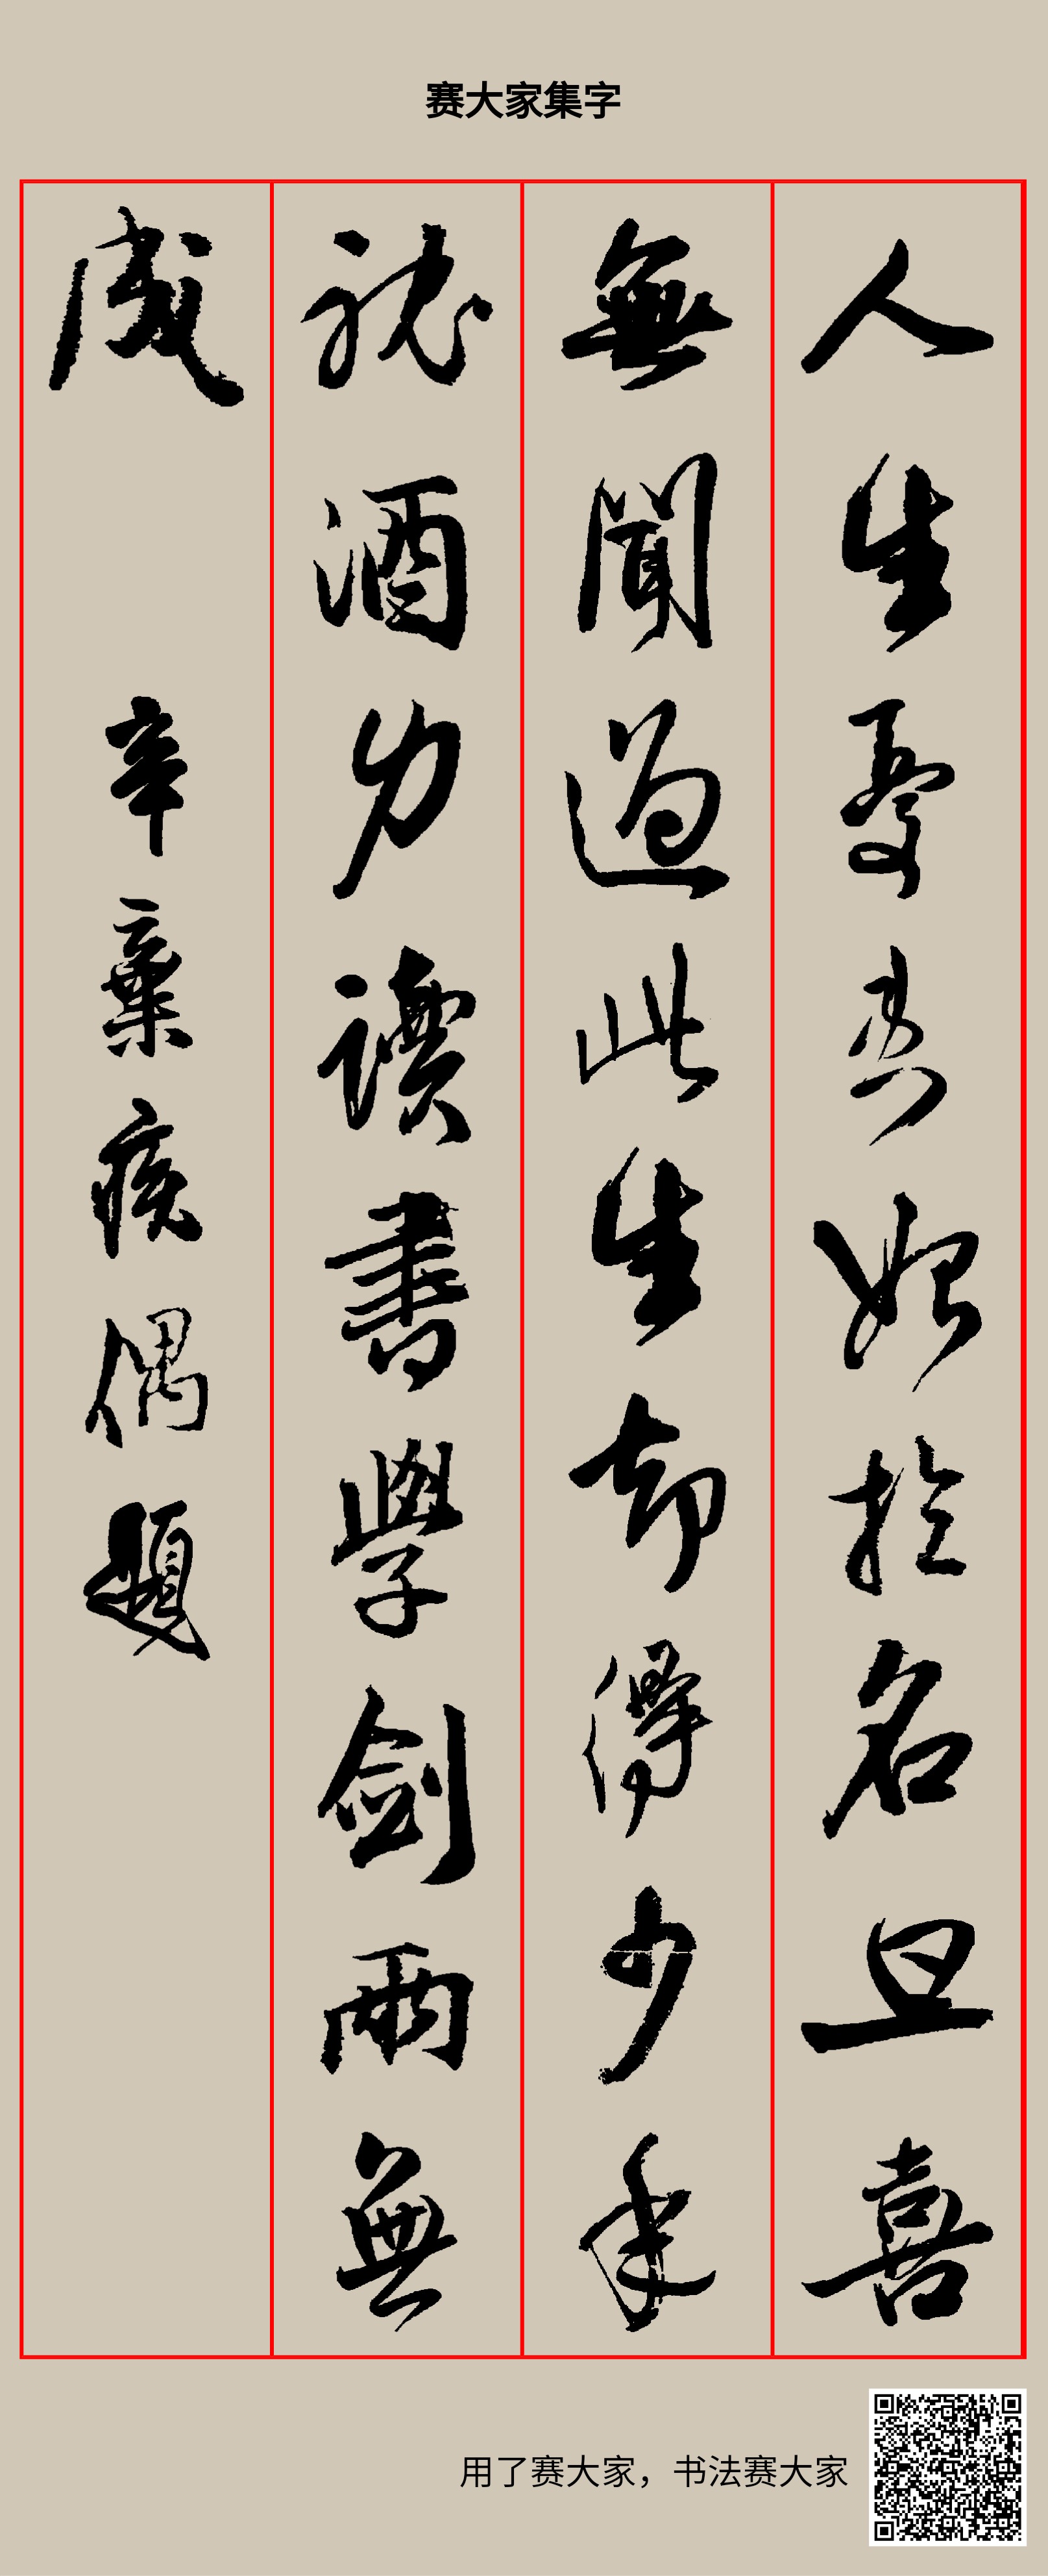 赛大家集字
人生憂患始於名且喜
無聞過此生却得少年
耽酒力讀書學劍兩無
成 辛棄疾偶題
用了赛大家，书法赛大家